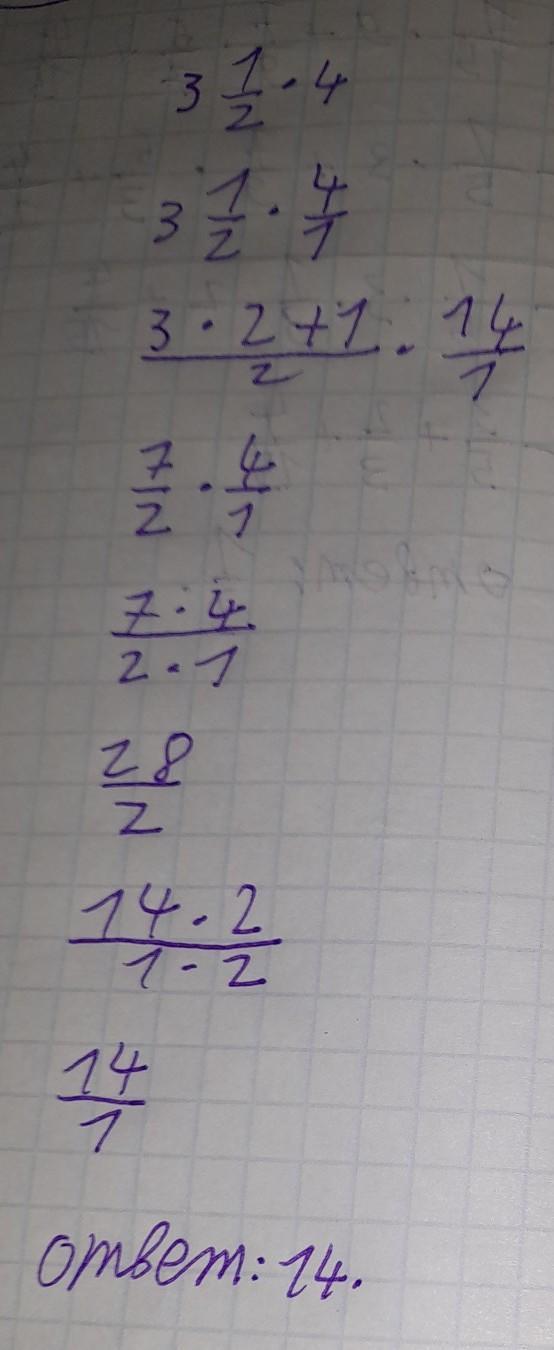 3 1/2 · 4
3 1/2 · 4/1
3 · 2 + 1/2 · 14/1
7/2 · 4/1
7 · 4/2 · 1
28/2
14 · 2/1 · 2
14/1
ответ: 14.